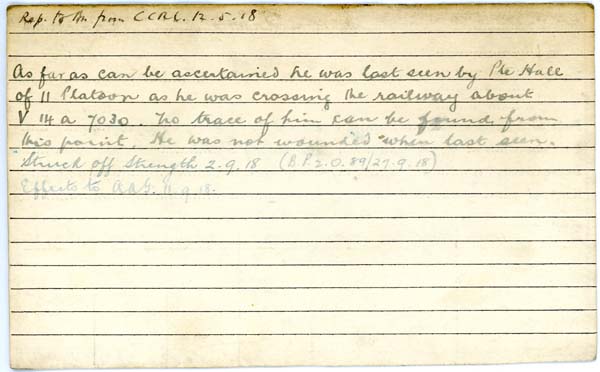 Rep. to Bn from CCRC. 12.5.18
As far as can be ascertained he was last seen by Pte Hall
of 11 Platoon as he was crossing the railway about
V 14 a 7030. No trace of him can be found from
this point. He was not wounded when last seen.
Struck off Strength 2.9.18 (B.P.2.O.89/27.9.18)
Effects to AAG. 11.9.18.